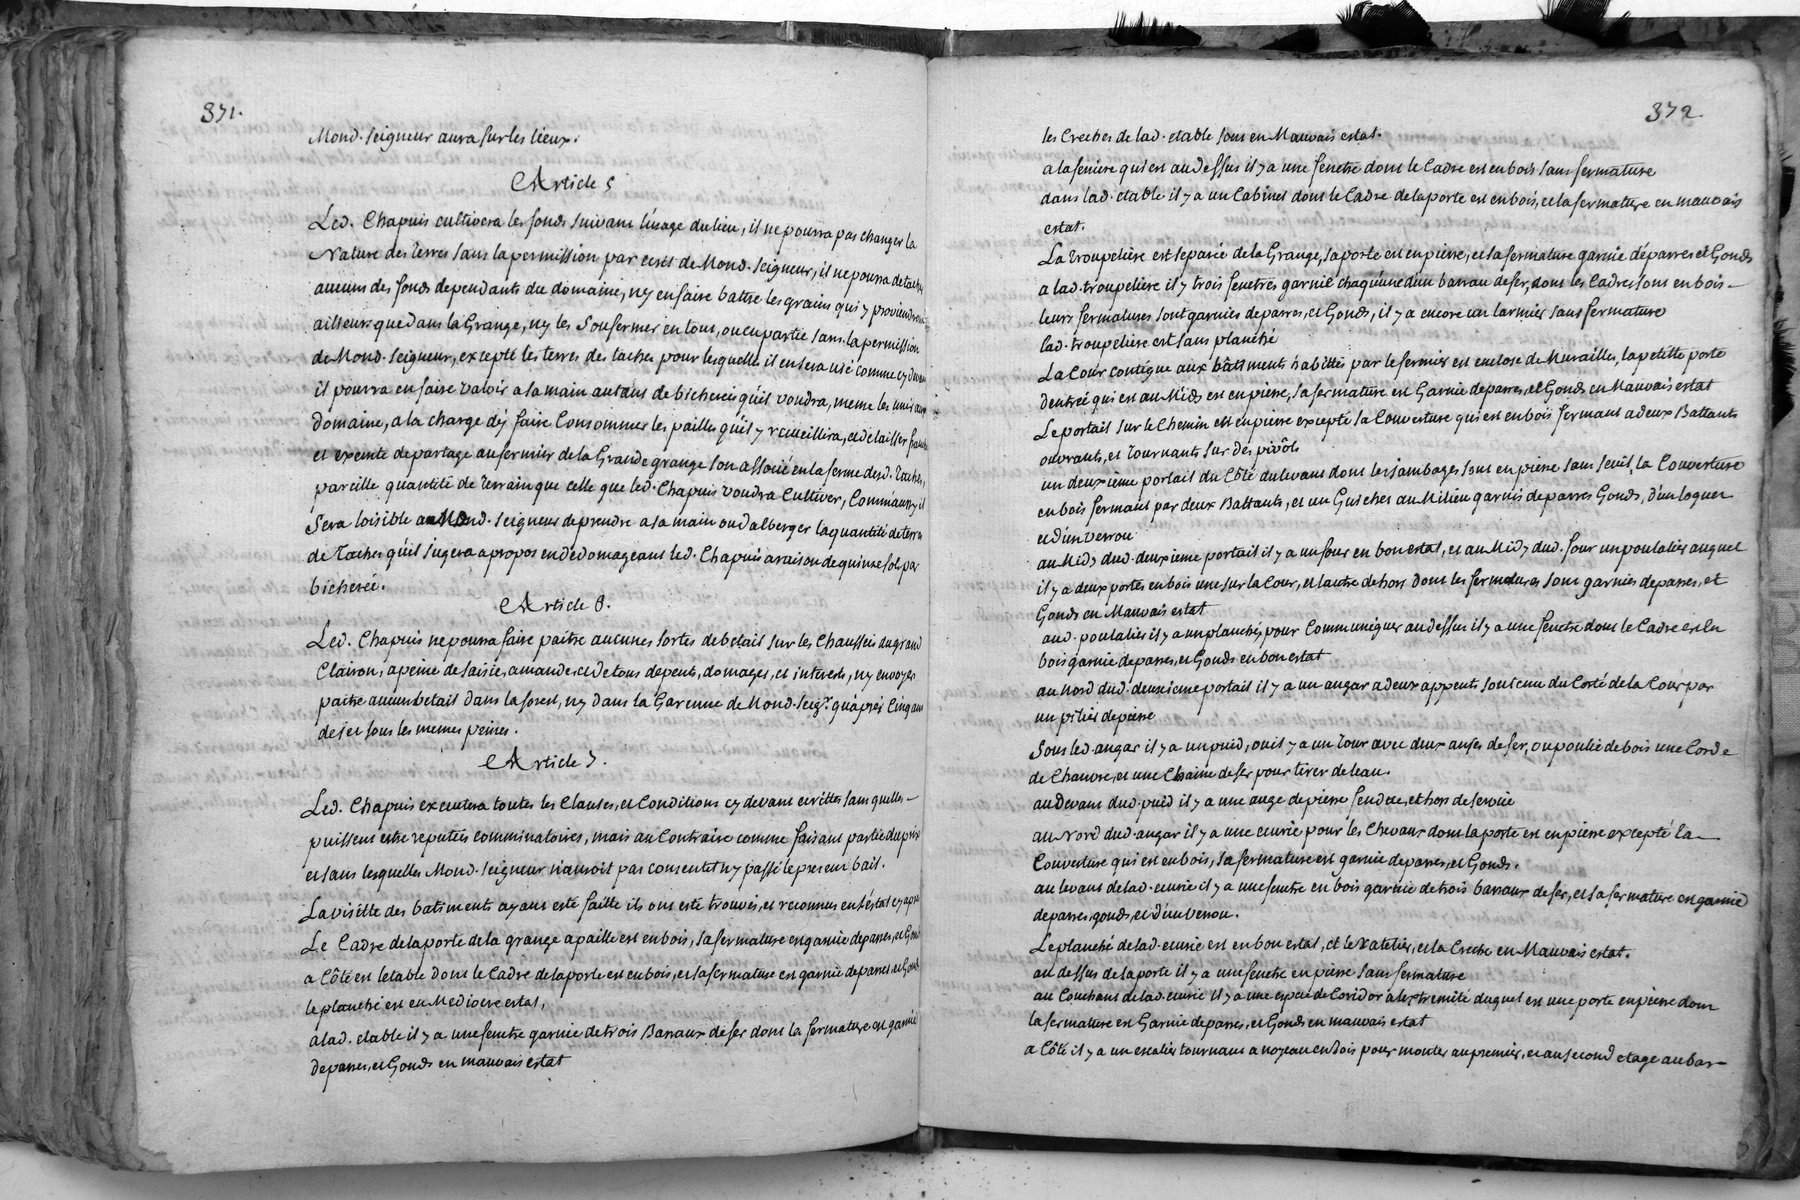 371.
Mond. seigneur aura sur les lieux.
Article 5
Led. Chapuis cultivera les fonds suivant l'usage du lieu, il ne pourra pas changer la
Nature des terres sans la permission par ecrit de Mond. seigneur, il ne pourra detacher
aucuns des fonds dependants du domaine, ny en faire battre les grains qui y proviendront
ailleurs que dans la Grange, ny les Soufermer en tout, ou en partie sans la permission
de Mond. seigneur, excepté les terres des taches pour lesquelles il en sera usé comme cy devant
il pourra en faire valoir a sa main autant de bicherées qu'il voudra, meme les unir au
domaine, a la charge d'y faire Consommer les pailles qu'il y recueillira, et de laisser franche
et exemte de partage au fermier de la Grande grange son associé en la ferme desd. taches,
pareille quantité de terrain que celle que led. Chapuis voudra Cultiver, Comm'aussy il
Sera loisible a Mond. seigneur de prendre a sa main ou d'alberger la quantité de terre
de taches qu'il jugera a propos en dédomageant led. Chapuis a raison de quinze sols par
bicherée.
Article 6.
Led. Chapuis ne pourra faire paitre aucunes sortes de betail sur les Chaussées du grand
Clairon, a peine de saisie, amande, et de tous depents, domages, et interests, ny envoyer
paitre aucun betail dans la forest, ny dans la Garenne de Mond. seigr. qu'après Cinq ans
de ser sous les memes peines.
Article 7.
Led. Chapuis executera toutes les Clauses, et Conditions cy devant ecrittes sans qu'elles
puissent estre reputées comminatoires, mais au Contraire comme faisant partie du prix
et sans lesquelles Mond. seigneur n'auroit pas consenti ny passé le present bail.
La visitte des batiments ayant esté faitte ils ont esté trouvés, et reconnus en l'état cy après
Le Cadre de la porte de la grange a paille est en bois, sa fermature est garnie de parres, et Gonds
a Côté est l'etable dont le Cadre de la porte est en bois, et la fermature est garnie de parres et Gonds
le planché est en Mediocre estat,
a lad. etable il y a une fenetre garnie de trois Barraux de fer dont la fermature est garnie
de parres, et Gonds en mauvais estat
372.
les Creches de lad. etable sont en Mauvais estat.
a la feniere qui est au dessus il y a une fenetre dont le Cadre est en bois sans fermature
dans lad. etable il y a un Cabinet dont le Cadre de la porte est en bois, et la fermature en mauvais
estat.
La troupeliere est separée de la Grange, sa porte est en pierre, et sa fermature garnie de parres et Gonds
a lad. troupeliere il y trois fenetres garnie chaqueune d'un barrau de fer, dont les Cadres sont en bois
leurs fermatures sont garnies de parres, et Gonds, il y a encore un larmier sans fermature
lad. troupeliere est sans planché
La Cour contigue aux bâtiments habittés par le fermier est enclose de Murailles, la petitte porte
d'entrée qui est au Midy est en pierre, sa fermature est Garnie de parres, et Gonds en Mauvais estat
Le portail sur le Chemin est en pierre excepté sa Couverture qui est en bois fermant a deux Battants
ouvrants, et tournants sur des pivôts
un deuxieme portail du Côté du levant dont les jambages sont en pierre sans seuil, la Couverture
en bois fermant par deux Battants, et un Guichet au Milieu garnis de parres Gonds, d'un loquet
et d'un verrou
au Midy dud. deuxieme portail il y a un four en bon estat, et au Midy dud. four un poulalier auquel
il y a deux portes en bois une sur la Cour, et l'autre dehors dont les fermatures sont garnies de parres, et
Gonds en Mauvais estat
aud. poulalier il y a un planché, pour Communiquer au dessus il y a une fenetre dont le Cadre est en
bois garnie de parres, et Gonds en bon estat
au Nord dud. deuxieme portail il y a un angar a deux appents soutenu du Costé de la Cour par
un pilier de pierre
Sous led. angar il y a un puid, ou il y a un tour avec deux anses de fer, ou poulie de bois une Corde
de Chanvre, et une Chaine de fer pour tirer de l'eau.
au Devant dud. puid il y a une auge de pierre fendue, et hors de service
au Nord dud. angar il y a une ecurie pour les Chevaux dont la porte est en pierre excepté la
Couverture qui est en bois, sa fermature est garnie de parres, et Gonds.
au levant de lad. ecurie il y a une fenetre en bois garnie de trois barraux de fer, et sa fermature est garnie
de parres, gonds, et d'un verrou.
Le planché de lad. ecurie est en bon estat, et le ratelier, et la Creche en Mauvais estat.
au dessus de la porte il y a une fenetre en pierre sans fermature
au Couchant de lad. ecurie il y a une espece de Coridor a l'extremité duquel est une porte en pierre dont
la fermature est Garnie de parres, et Gonds en mauvais estat
a Côté il y a un escalier tournant a noyeau en bois pour monter au premier, et au second etage au bas